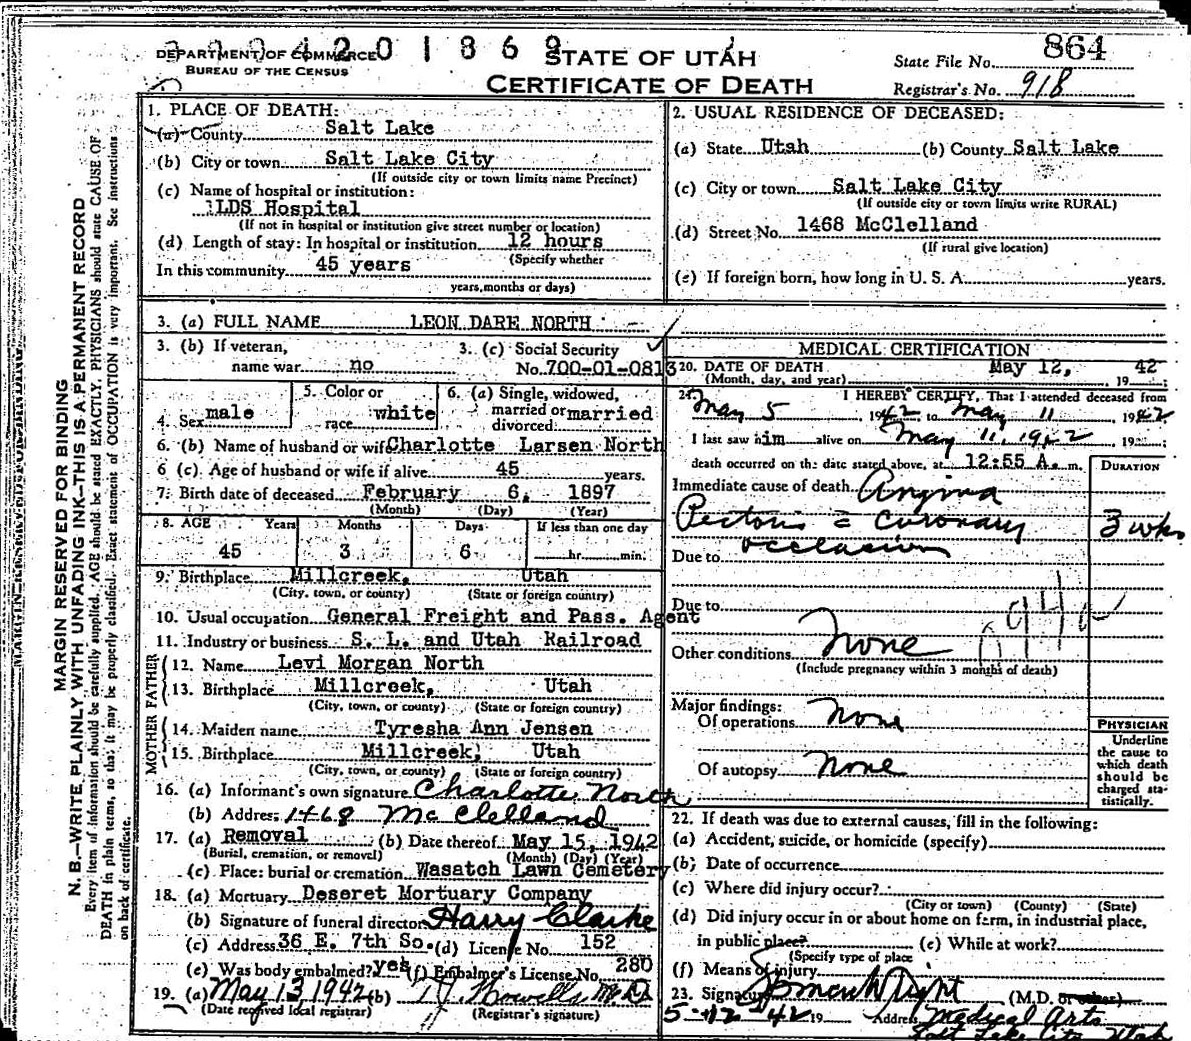 DEPARTMENT OF COMMERCE
BUREAU OF THE CENSUS
4 2 0 1 8 6 9
STATE OF UTAH
CERTIFICATE OF DEATH
State File No. 864
Registrar's No. 918
MARGIN RESERVED FOR BINDING
N. B.—WRITE PLAINLY WITH UNFADING INK—THIS IS A PERMANENT RECORD
Every item of information should be carefully supplied. AGE should be stated EXACTLY. PHYSICIANS should state CAUSE OF
DEATH in plain terms, so that it may be properly classified. Exact statement of OCCUPATION is very important. See instructions
on back of certificate.
1. PLACE OF DEATH:
(a) County Salt Lake
(b) City or town Salt Lake City
(If outside city or town limits name Precinct)
(c) Name of hospital or institution:
LDS Hospital
(If not in hospital or institution give street number or location)
(d) Length of stay: In hospital or institution 12 hours
(Specify whether
In this community 45 years
years, months or days)
2. USUAL RESIDENCE OF DECEASED:
(a) State Utah (b) County Salt Lake
(c) City or town Salt Lake City
(If outside city or town limits write RURAL)
(d) Street No. 1468 McClelland
(If rural give location)
(e) If foreign born, how long in U. S. A. years.
3. (a) FULL NAME LEON DARE NORTH
3. (b) If veteran,
name war no
3. (c) Social Security
No. 700-01-0813
4. Sex male
5. Color or
race white
6. (a) Single, widowed,
married or married
divorced
6. (b) Name of husband or wife Charlotte Larsen North
6 (c). Age of husband or wife if alive 45 years.
7. Birth date of deceased February 6, 1897
(Month) (Day) (Year)
8. AGE Years Months Days If less than one day
45 3 6 hr. min.
9. Birthplace Millcreek, Utah
(City, town, or county) (State or foreign country)
10. Usual occupation General Freight and Pass. Agent
11. Industry or business S. L. and Utah Railroad
FATHER
12. Name Levi Morgan North
13. Birthplace Millcreek, Utah
(City, town, or county) (State or foreign country)
MOTHER
14. Maiden name Tyresha Ann Jensen
15. Birthplace Millcreek, Utah
(City, town, or county) (State or foreign country)
16. (a) Informant's own signature Charlotte North
(b) Address 1468 McClelland
17. (a) Removal (b) Date thereof May 15, 1942
(Burial, cremation, or removal) (Month) (Day) (Year)
(c) Place: burial or cremation Wasatch Lawn Cemetery
18. (a) Mortuary Deseret Mortuary Company
(b) Signature of funeral director Harry Clarke
(c) Address 36 E. 7th So. (d) License No. 152
(e) Was body embalmed? yes (f) Embalmer's License No. 280
19. (a) May 13 1942 (b) Howells M.D.
(Date received local registrar) (Registrar's signature)
MEDICAL CERTIFICATION
20. DATE OF DEATH May 12, 1942
(Month, day, and year)
21. I HEREBY CERTIFY, That I attended deceased from
May 5 1942 to May 11 1942
I last saw him alive on May 11, 1942 19
death occurred on the date stated above, at 12:55 A. m.
DURATION
Immediate cause of death Angina
Pectoris c̄ Coronary 3 wks
occlusion
Due to
Due to
Other conditions None
(Include pregnancy within 3 months of death)
94a
Major findings:
Of operations None
Of autopsy None
PHYSICIAN
Underline
the cause to
which death
should be
charged sta-
tistically.
22. If death was due to external causes, fill in the following:
(a) Accident, suicide, or homicide (specify)
(b) Date of occurrence
(c) Where did injury occur?
(City or town) (County) (State)
(d) Did injury occur in or about home on farm, in industrial place,
in public place? (e) While at work?
(Specify type of place
(f) Means of injury
23. Signature Wright (M.D. or other)
5-12-42 19 Address Medical Arts
Salt Lake City Utah